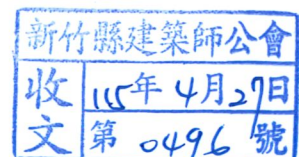 新竹縣建築師公會
收文
115年4月27日
第0496號